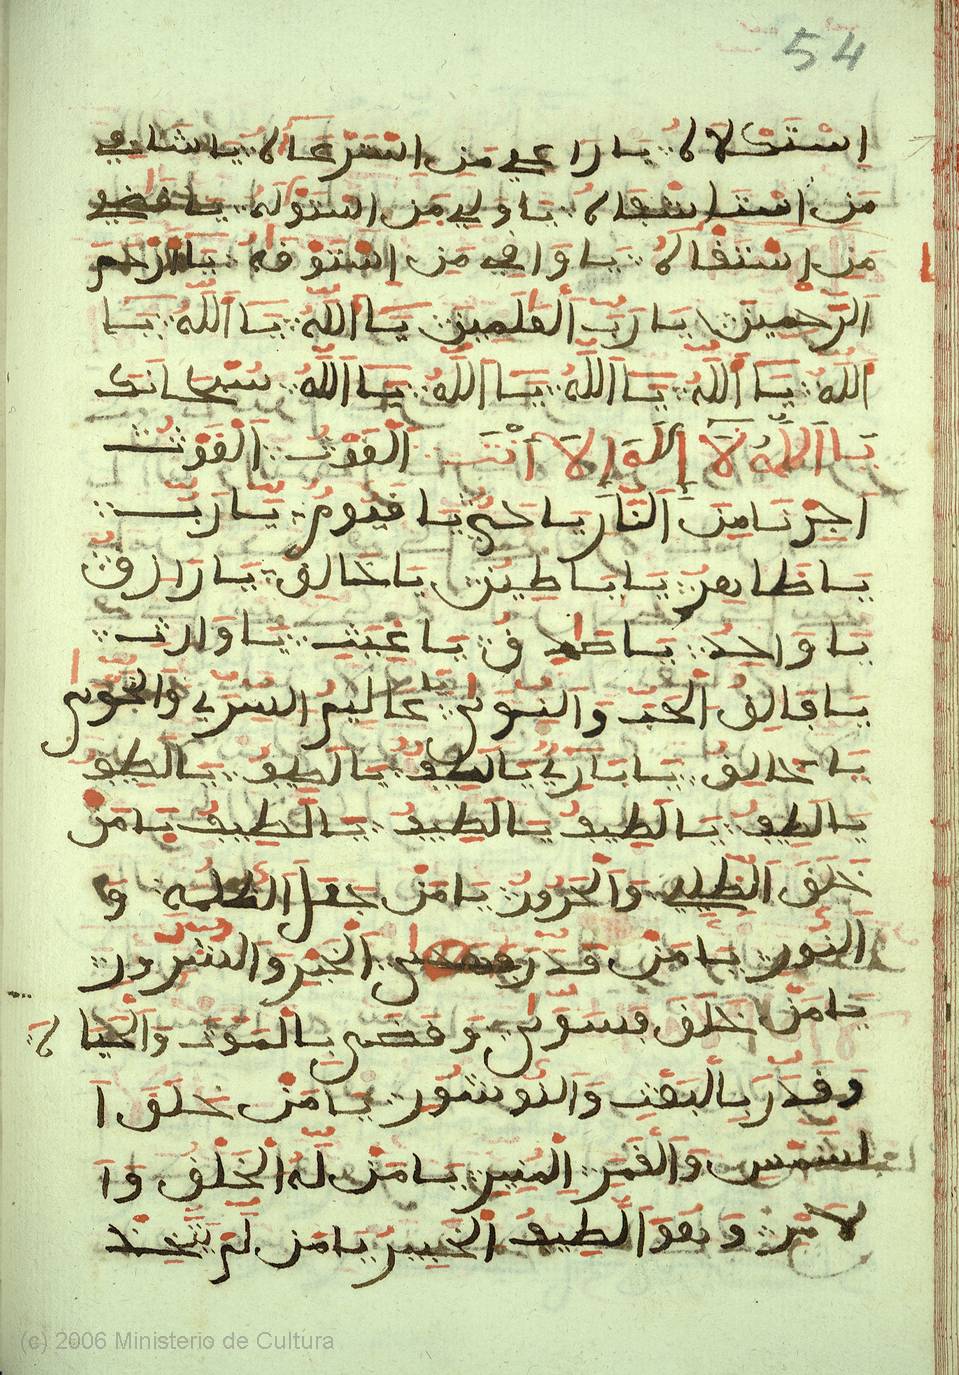 54
اِسْتَكْلَاهُ يَا رَاعِي مَن اِسْتَرْعَاهُ يَا شَافِي
مَن اسْتَشْفَاهُ يَا وَلِي مَن اسْتَوْلَهُ يَا قَاضِي
مَن اِسْتَقْضَاهُ يَا وَافِي مَن اسْتَوْفَهُ يَا أَرْحَم
الرَّحِمِينَ يَا رَبَّ الْعَلَمِينَ يَا اللَّهُ يَا اللَّهُ يَا
اللَّهُ يَا اللَّهُ يَا اللَّهُ يَا اللَّهُ يَا اللَّهُ سُبْحَانَكَ
يَا اللَّهُ لَا إِلَهَ إِلَّا أَنْتَ الْغَوْثُ الْغَوْثُ
اَجِرْنَا مِنَ النَّارِ يَا حَيُّ يَا قَيُّومُ يَا رَبُّ
يَا ظَاهِرُ يَا بَاطِينُ يَا خَالِقُ يَا رَازِقُ
يَا وَاحِدُ يَا صَادِقُ يَا غَيثُ يَا وَارِثُ
يَا فَالِقُ الْحَبِّ وَالنَّوَى يَا عَالِيمُ السِّرِّ وَالنَّجْوَى
يَا خَالِقُ يَا بَارِيُ يَا لَطِيفُ يَا لَطِيفُ يَا لَطِيفُ
يَا لَطِيفُ يَا لَطِيفُ يَا لَطِيفُ يَا لَطِيفُ يَا مَنْ
خَلَقَ الظِّلِيلَ وَالْحَرُورَ يَا مَنْ جَعَلَ الظُّلُمَةِ وَ
النُّور يَا مَنْ قَدَّرَ الْخَيْرَ وَالشُّرُورَ
يَا مَنْ خَلَقَ فَسَوَى وَقَضَى بِالْمَوْتِ وَالْحَيَاةِ
وَقَدَّرَ بِالْبَعْثِ وَالنُّوشُورِ يَا مَنْ خَلَقَ ا
لشَّمْسَ وَالْقَمَرَ الْمُنِيرَ يَا مَنْ لَهُ الْخَلْقُ وَا
لَامْرُ وَهُوَ الَّطِيفُ الْخَبِيرُ يَا مَنْ لَمْ يَتَّخِذْ
(c) 2006 Ministerio de Cultura